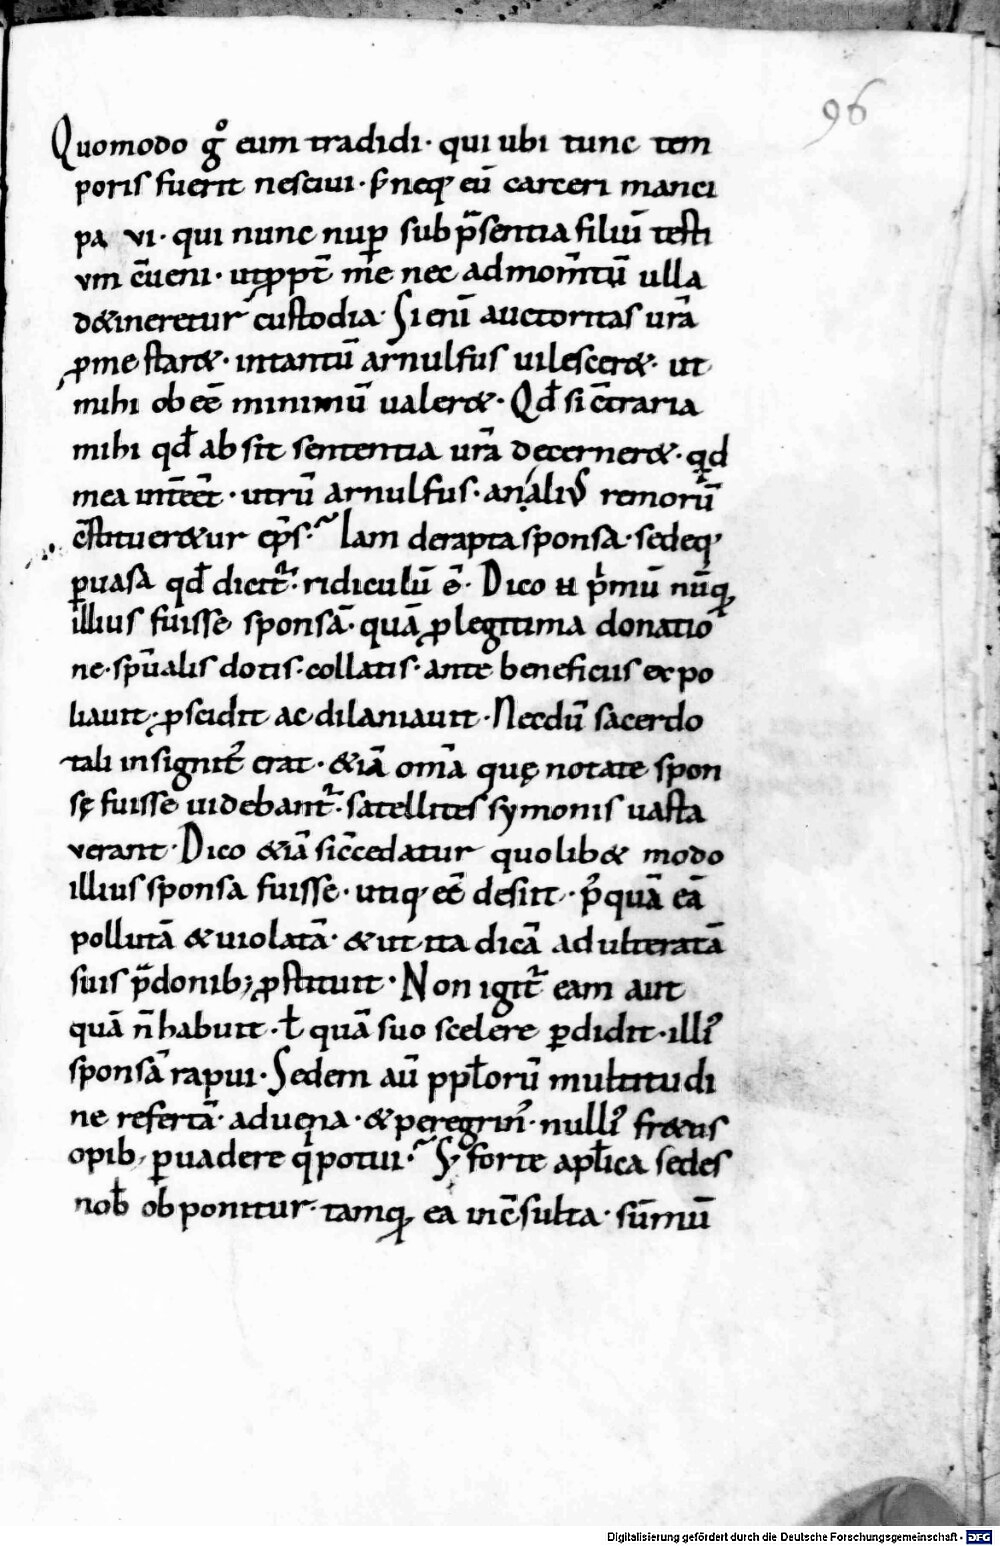 96
Quomodo gͦ eum tradidi· qui ubi tunc tem
poris fuerit nescivi· s̄ neq; eū carceri manci
pa vi· qui nunc nup̲ sub p̄sentia filiū testi
vm c̄ueni· ut ꝓpt̄ me nec ad mom̄tū ulla
d&ineretur custodia· Si enī auctoritas ur̄a
ꝓ me star&· intantū arnulfus uilescer&· ut
mihi ob eē minimū ualer&· Qd̄ si c̄traria
mihi qd̄ absit sententia ur̄a decerner&· qd
mea int̄eēt· utrū arnulfus· an aliꝰ remorū
c̄stituer&ur ep̄s· Iam derapta sponsa· sedeq;
ꝑuasa qd̄ dicit᷑· ridiculū ē· Dico n̄ p̄mū nūq̄
illius fuisse sponsā· quā ꝓ legitima donatio
ne· sp̄ualis dotis· collatis· ante beneficiis expo
liauit· ꝓscidit ac dilaniauit· Necdū sacerdo
tali insignit᷑ erat· &iā om̄a quę notate spon
sę fuisse uidebant᷑· satellites symonis uasta
verant· Dico &iā si c̄cedatur quolib& modo
illius sponsa fuisse· utiq; eē desiit· p᷒quā eā
pollutā & uiolatā· & ut ita dicā adulteratā
suis p̄donib; ꝓstituit· Non igit᷑ eam aut
quā n̄ habuit· ł quā suo scelere ꝑdidit· illi᷒
sponsā rapui· Sedem aū pp̄lorū multitudi
ne refertā· aduena· & peregrin᷒· nulli᷒ fr&us
opib; ꝑuadere q̇ potui· Sꝫ forte ap̄lica sedes
nob̄ obponitur· tamq̄ ea inc̄sulta· sūmū
Digitalisierung gefördert durch die Deutsche Forschungsgemeinschaft - DFG